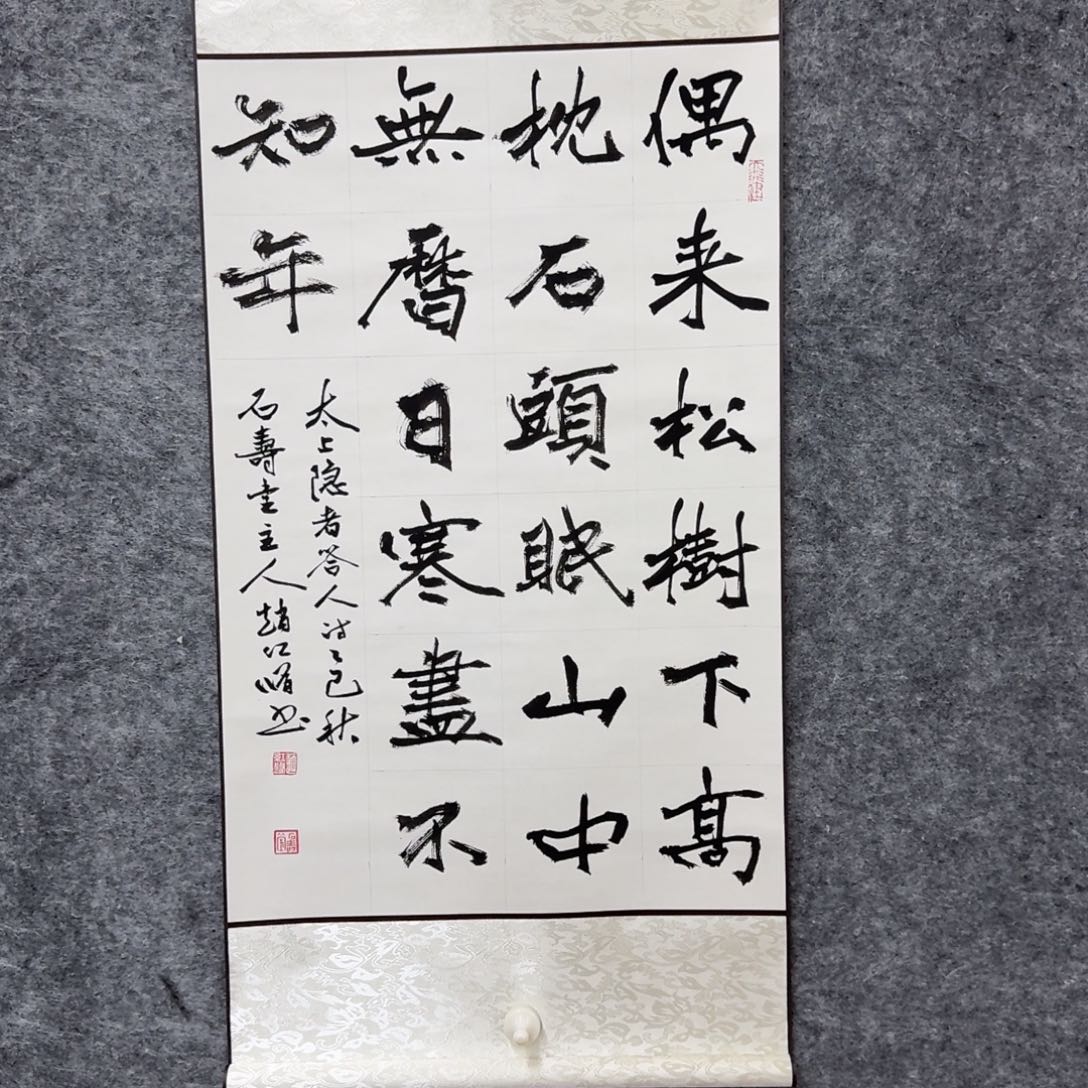 偶来松樹下高
枕石頭眠山中
無曆日寒盡不
知年
太上隐者答人诗乙巳秋
石壽堂主人趙江 书